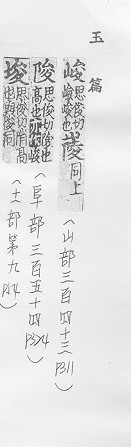 玉篇
峻思俊切險峻也𨺵同上
(山部三百四十三P311
陖思俊切險也高也亦作峻
(阜部三百五十四P324
埈思俊切陗高也與陖同
(土部第九P14